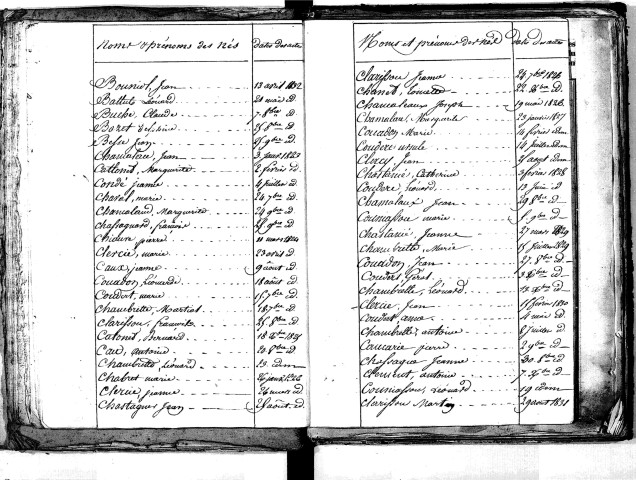 Noms & prénoms des Nés Dates des actes
Bouniol, Jean 13 avril 1822
Battut Léonard 21 mai d
Buche, Claude 7 8bre d
Bozet
Besse Jean 25 9bre d
Chamalaux, Jean 1823
Cattenot, Marguerite 2 février d
Condé jeanne 4 juillet d
Chazal, marie 24 7bre d
Chamalaud, Marguerite 24 9bre d
Chassagnard, françois d
Chidure pierre 11 mars 1824
Clercie, marie 23 avril d
Caux, jeanne 9 août d
Coudon, Léonarde 18 août d
Coudert, marie 15 7bre d
Chambrette, Martial 18 7bre d
Clarissou, françoise 25 8bre d
Catonet, Bernard 18 Xbre 1824
Caud, antoine d
Chambrette Léonard 29 idem
Chabret marie
Clercie, jeanne 26 mars d
Chastagner Jean août d
Noms et prénoms des Nés Dates des actes
Clarissou Jeanne 26 7bre 1826
Chanet, Louette 22 Xbre d
Chamcahaux Joseph 19 mai 1826
Chamalau, Marguerite 23 janvier 1827
Couadon, Marie 14 février idem
Coudère ursule 14 juillet idem
Clercy, Jean 2 août idem
Chastenié, Catherine 3 février 1828
Coudere, Léonard 13 Juin d
Chamalaux Jean 29 8bre d
Counassou marie 5 9bre d
Chastanié, Jeanne 27 mars 1829
Chambrette, Marie 15 juillet 1829
Couadon, Jean 27 8bre d
Coudert 13 Xbre d
Chambrette, Léonard 13 Xbre d
Clercie, Jean février 1830
Coudert anne 4 mai d
Chambrette, antoine 27 juillet d
Camarie pierre 2 9bre d
Chassagne Jeanne 30 8bre d
Clement, antoine 17 Xbre d
Couniassou, Léonard 19 idem
Clarissou Martin 29 août 1831